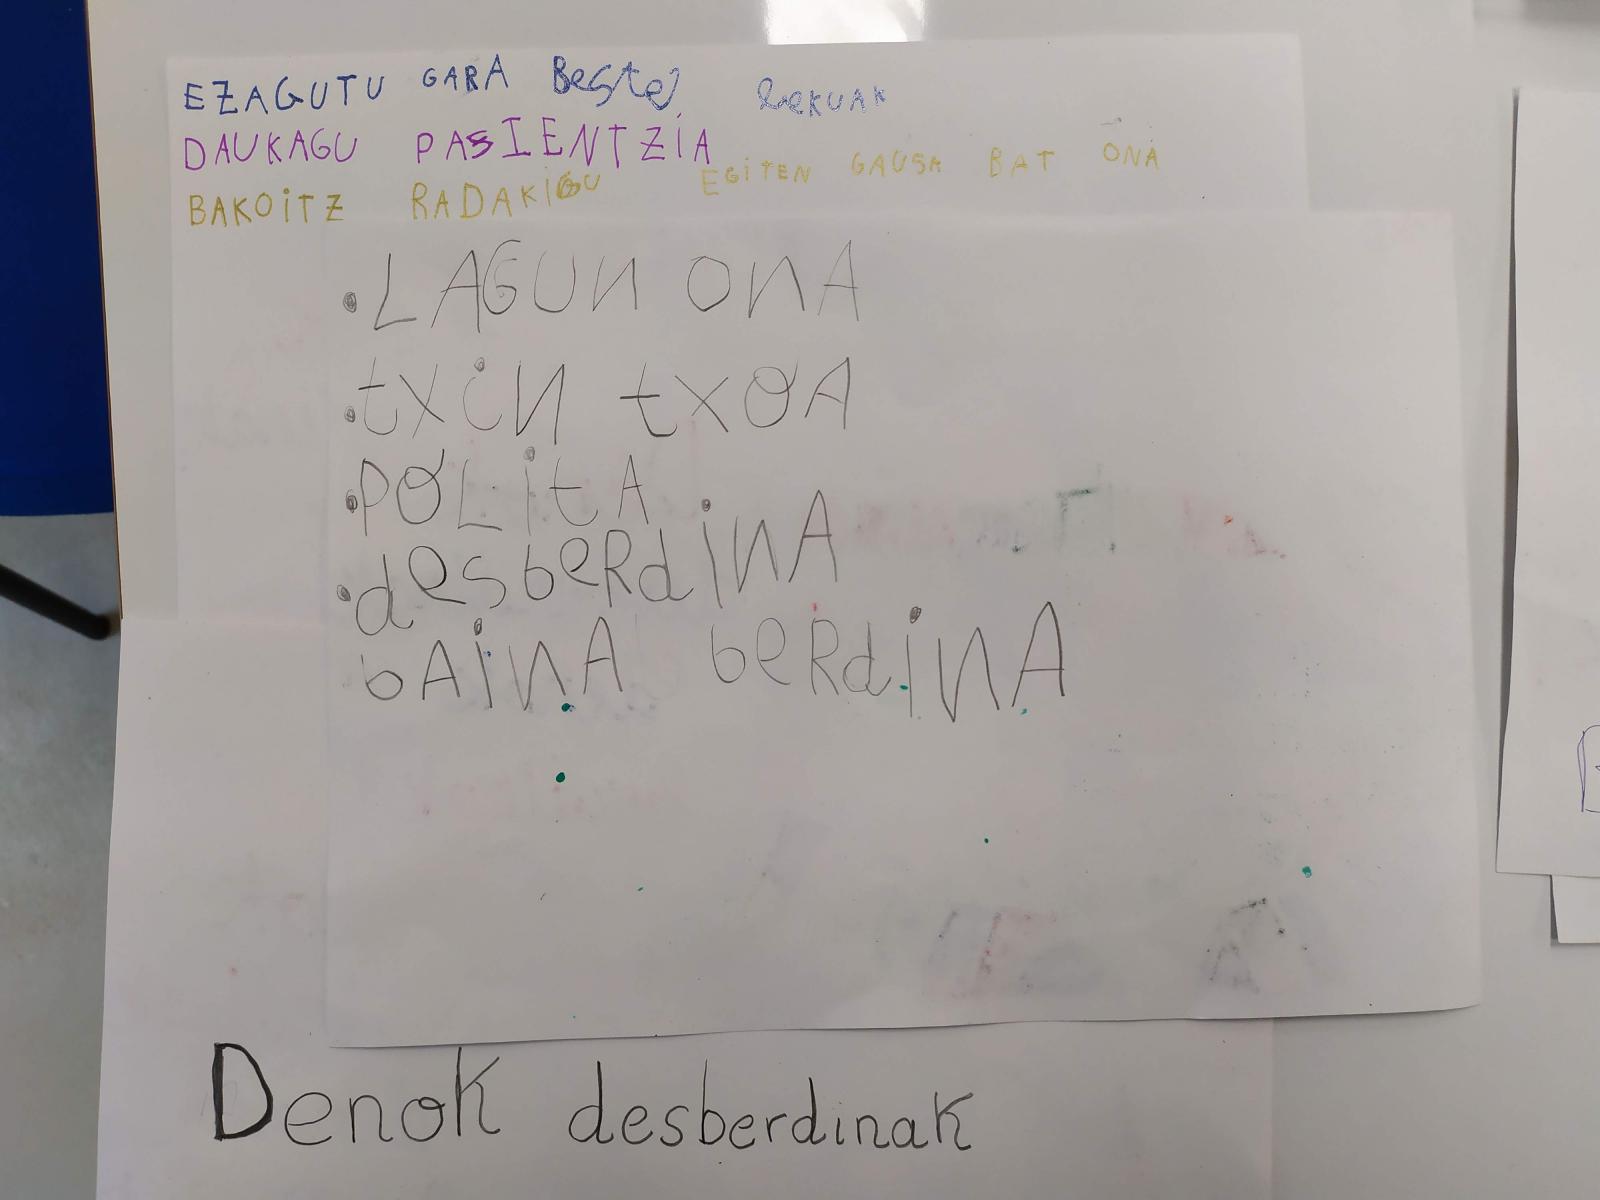 EZAGUTU GARA
DAUKAGU PASIENTZIA
BAKOITZ RADAKIGU EGITEN GAUSA BAT ONA
• LAGUN ONA
• txiN txoA
• POLitA
• desbeRdinA
bAinA beRdinA
Denok desberdinak